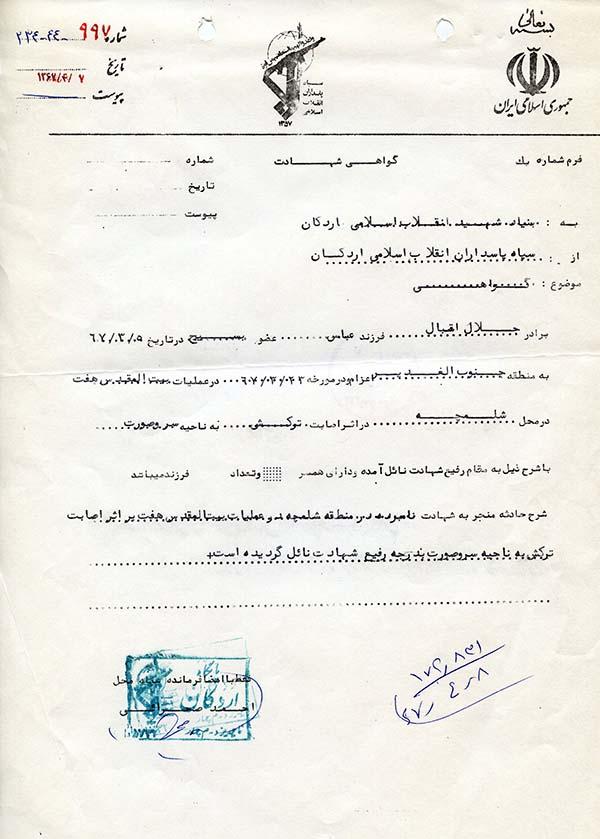 بسمه تعالی
جمهوری اسلامی ایران
سپاه
پاسداران
انقلاب
اسلامی
۱۳۵۷
شماره ۹۹۷-۲۳۴-۴۴
تاریخ ۱۳۶۷/۴/۷
پیوست
فرم شماره یك گواهی شهادت شماره
تاریخ
پیوست
به : بنیاد شهید انقلاب اسلامی اردکان
از : سپاه پاسداران انقلاب اسلامی اردکان
موضوع : گواهی
برادر جلال اقبال فرزند عباس عضو بسیج در تاریخ ۶۷/۰۳/۰۵
به منطقه جنوب الغدیر اعزام و در مورخه ۶۷/۰۳/۰۲۳ در عملیات بیت المقدس هفت
در محل شلمچه در اثر اصابت ترکش به ناحیه سر و صورت
با شرح ذیل به مقام رفیع شهادت نائل آمده و دارای همسر و تعداد فرزند میباشد
شرح حادثه منجر به شهادت نامبرده در منطقه شلمچه در عملیات بیت المقدس هفت بر اثر اصابت
ترکش به ناحیه سر و صورت بدرجه رفیع شهادت نائل گردیده است
فقط با امضا فرمانده سپاه محل
اردکان
احمد
۱۲۴٫۸۳۱